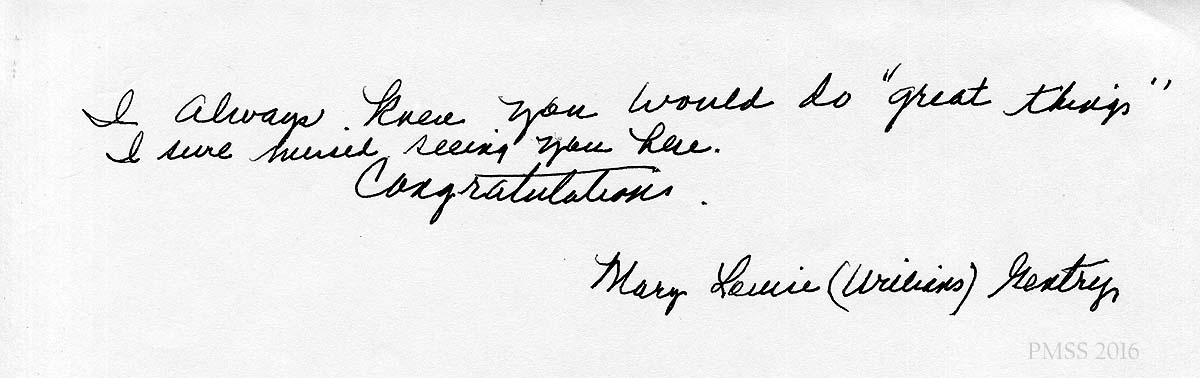 I always knew you would do "great things"
I sure missed seeing you here.
Congratulations.
Mary Louise (Williams) Gentry
PMSS 2016